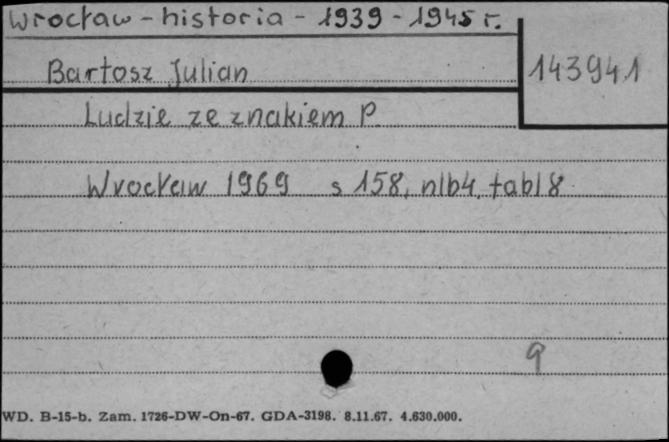 Wrocław - historia - 1939 - 1945 r.
Bartosz Julian
143941
Ludzie ze znakiem P
Wrocław 1969 s 158, nlb4, tabl 8
9
WD. B-15-b. Zam. 1726-DW-On-67. GDA-3198. 8.11.67. 4.630.000.